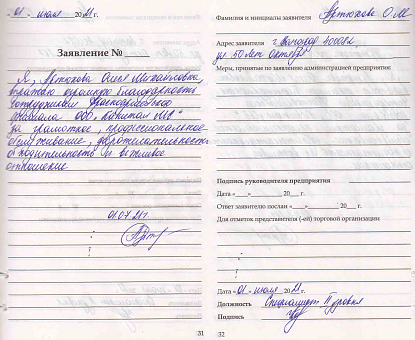 «01» июля 2021 г.
Заявление №
Я, Артюхова Олеся Михайловна
выражаю огромную благодарность
сотрудникам Красноармейского
филиала ООО „Капитал МС"
за грамотное, профессиональное
обслуживание, доброжелательность
и вежливое
отношение
01.07.21г.
31
Фамилия и инициалы заявителя Артюхова О.М.
Адрес заявителя г. Волгоград 400082
ул. 50 лет Октября
Меры, принятые по заявлению администрацией предприятия:
Подпись руководителя предприятия
Дата «___» ________ 20___ г.
Ответ заявителю послан «___» ________ 20___ г.
Для отметок представителя (-ей) торговой организации
Дата «01» июля 2021 г.
Должность Специалист II уровня
Подпись
32